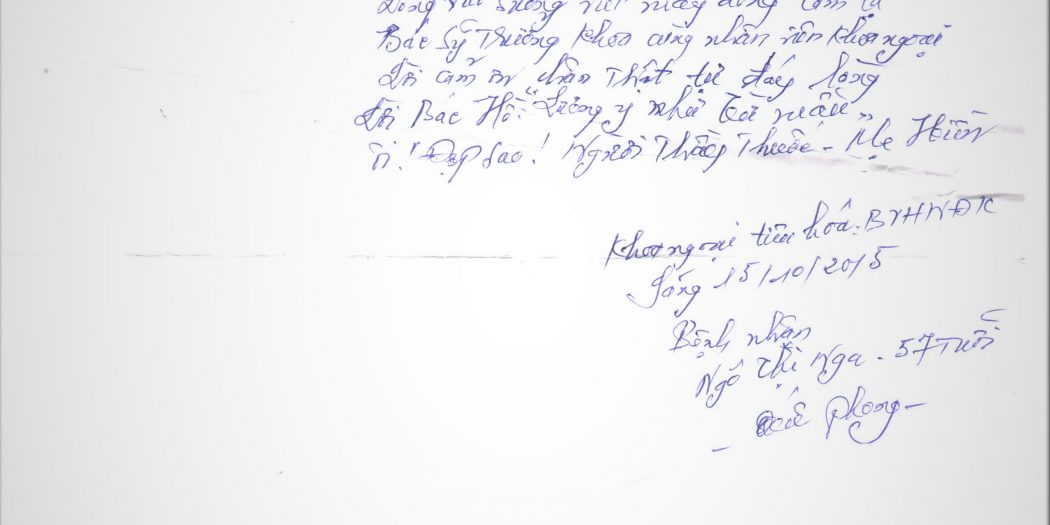 viết mấy dòng cảm tạ
Bác Sỹ Trưởng Khoa cùng nhân viên Khoa ngoại
Lời cảm ơn chân Thật từ đáy lòng
Lời Bác Hồ: "Lương y như từ mẫu"
Ôi! Đẹp sao! Người Thầy Thuốc - Mẹ Hiền
Khoa ngoại tiêu hoá: BVHNĐK
Sáng 15/10/2015
Bệnh nhân
Ngô Thị Nga - 57 Tuổi
Phong -